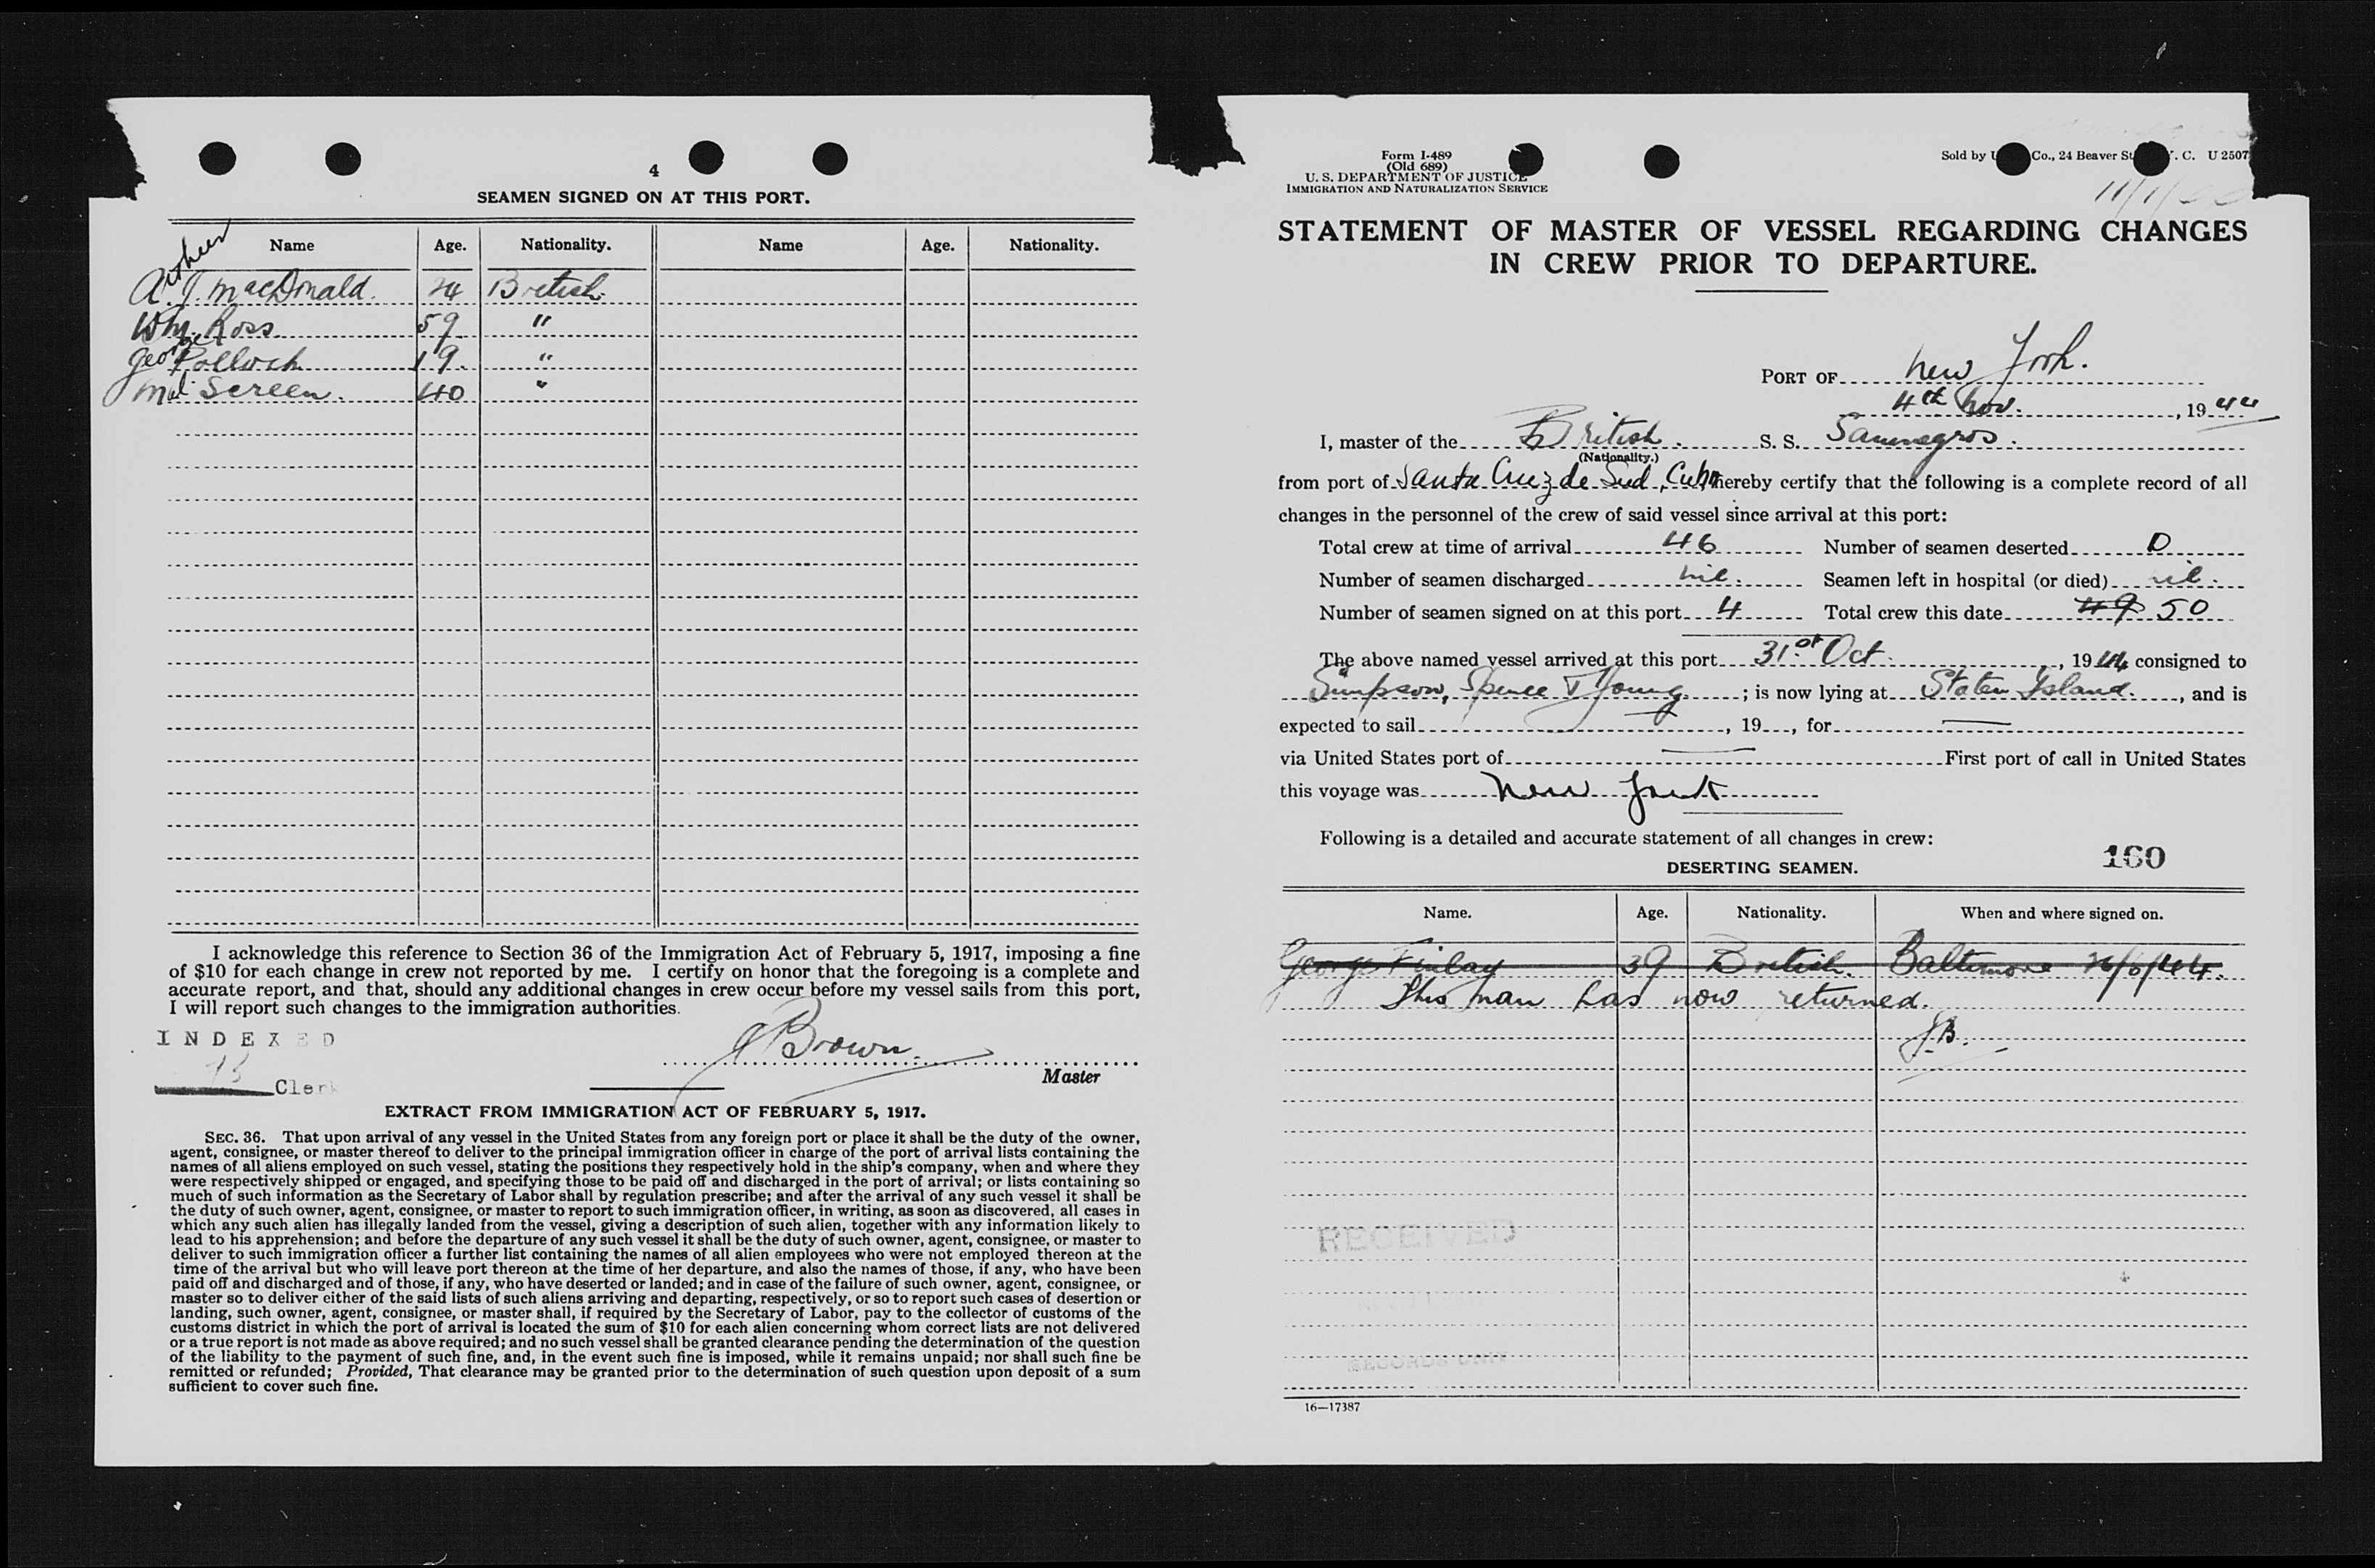 4
SEAMEN SIGNED ON AT THIS PORT.
Name Age. Nationality. Name Age. Nationality.
Arthur
A. J. MacDonald. 24 British.
Wm. Ross 59 "
George Pollock 19. "
Screen. 40 "
I acknowledge this reference to Section 36 of the Immigration Act of February 5, 1917, imposing a fine
of $10 for each change in crew not reported by me. I certify on honor that the foregoing is a complete and
accurate report, and that, should any additional changes in crew occur before my vessel sails from this port,
I will report such changes to the immigration authorities.
INDEXED
J Brown.
Master
Clerk
EXTRACT FROM IMMIGRATION ACT OF FEBRUARY 5, 1917.
SEC. 36. That upon arrival of any vessel in the United States from any foreign port or place it shall be the duty of the owner,
agent, consignee, or master thereof to deliver to the principal immigration officer in charge of the port of arrival lists containing the
names of all aliens employed on such vessel, stating the positions they respectively hold in the ship's company, when and where they
were respectively shipped or engaged, and specifying those to be paid off and discharged in the port of arrival; or lists containing so
much of such information as the Secretary of Labor shall by regulation prescribe; and after the arrival of any such vessel it shall be
the duty of such owner, agent, consignee, or master to report to such immigration officer, in writing, as soon as discovered, all cases in
which any such alien has illegally landed from the vessel, giving a description of such alien, together with any information likely to
lead to his apprehension; and before the departure of any such vessel it shall be the duty of such owner, agent, consignee, or master to
deliver to such immigration officer a further list containing the names of all alien employees who were not employed thereon at the
time of the arrival but who will leave port thereon at the time of her departure, and also the names of those, if any, who have been
paid off and discharged and of those, if any, who have deserted or landed; and in case of the failure of such owner, agent, consignee, or
master so to deliver either of the said lists of such aliens arriving and departing, respectively, or so to report such cases of desertion or
landing, such owner, agent, consignee, or master shall, if required by the Secretary of Labor, pay to the collector of customs of the
customs district in which the port of arrival is located the sum of $10 for each alien concerning whom correct lists are not delivered
or a true report is not made as above required; and no such vessel shall be granted clearance pending the determination of the question
of the liability to the payment of such fine, and, in the event such fine is imposed, while it remains unpaid; nor shall such fine be
remitted or refunded; Provided, That clearance may be granted prior to the determination of such question upon deposit of a sum
sufficient to cover such fine.
Form I-489
(Old 689)
U. S. DEPARTMENT OF JUSTICE
IMMIGRATION AND NATURALIZATION SERVICE
Sold by U Co., 24 Beaver St Y. C. U 2507
STATEMENT OF MASTER OF VESSEL REGARDING CHANGES
IN CREW PRIOR TO DEPARTURE.
PORT OF New York.
4th Nov. , 19 44
I, master of the British. S. S. Samnegros.
(Nationality.)
from port of Santa Cruz de Sud, Cuba, hereby certify that the following is a complete record of all
changes in the personnel of the crew of said vessel since arrival at this port:
Total crew at time of arrival 46 Number of seamen deserted 0
Number of seamen discharged nil. Seamen left in hospital (or died) nil.
Number of seamen signed on at this port 4 Total crew this date 49 50
The above named vessel arrived at this port 31st Oct. , 1944 consigned to
Simpson, Spence & Young ; is now lying at Staten Island. , and is
expected to sail , 19 , for
via United States port of First port of call in United States
this voyage was New York
Following is a detailed and accurate statement of all changes in crew:
160
DESERTING SEAMEN.
Name. Age. Nationality. When and where signed on.
George Finlay 39 British. Baltimore 26/6/44.
This man has now returned.
J.B.
RECEIVED
RECORDS UNIT
16—17387